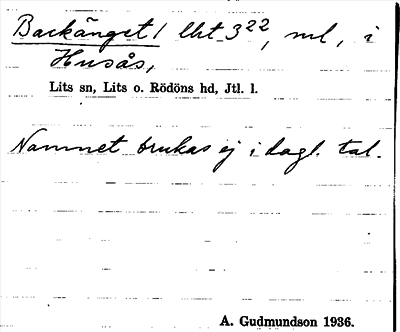 Backänget / lht 3²², nl, i
Husås,
Lits sn, Lits o. Rödöns hd, Jtl. l.
Namnet brukas ej i dagl. tal.
A. Gudmundson 1936.